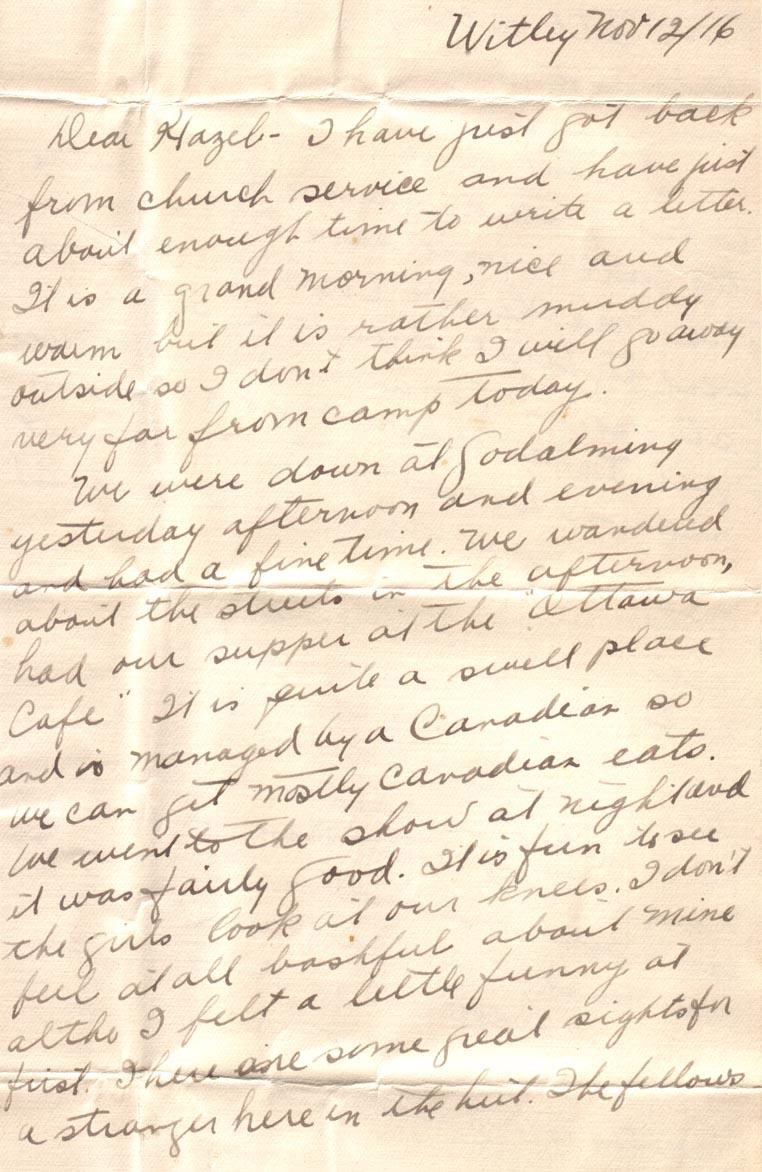 Witley Nov 12/16
Dear Hazel- I have just got back
from church service and have just
about enough time to write a letter.
It is a grand morning, nice and
warm but it is rather muddy
outside so I don't think I will go away
very far from camp today.
We were down at Godalming
yesterday afternoon and evening
and had a fine time. We wandered
about the streets in the afternoon,
had our supper at the "Ottawa
Cafe" It is quite a swell place
and is managed by a Canadian so
we can get mostly Canadian eats.
We went to the show at night and
it was fairly good. It is fun to see
the girls look at our knees. I don't
feel at all bashful about mine
altho I felt a little funny at
first. There are some great sights for
a stranger here in the hut. The fellows